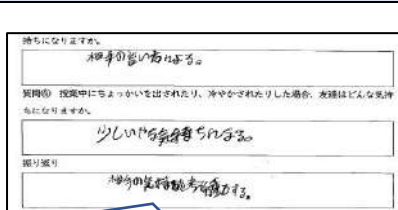 持ちになりますか。
相手の言い方による。
質問⑥ 授業中にちょっかいを出されたり、冷やかされたりした場合、友達はどんな気持
ちになりますか。
少しいやな気持ちになる。
振り返り
相手の気持ちを考えて行動する。